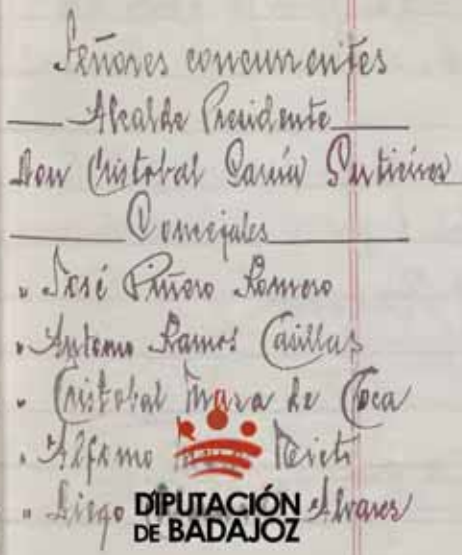 Señores concurrentes
Alcalde Presidente
Don Cristobal García
Concejales
" José Piñero Romero
" Antonio Ramos Casillas
" Cristobal Mara de Coca
" Alfonso
" Diego Alvares
DIPUTACIÓN
DE BADAJOZ